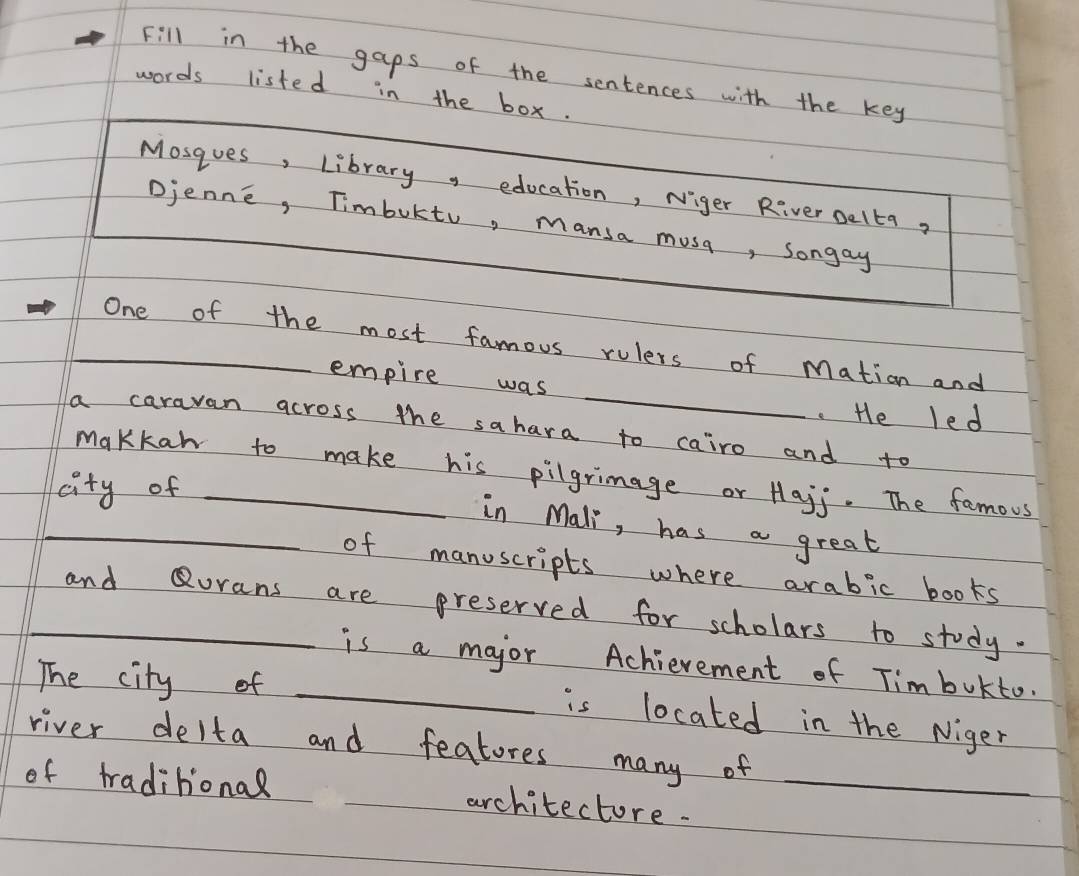 Fill in the gaps of the sentences with the key
words listed in the box.
Mosques, Library, education, Niger River Delta,
Djenné, Timbuktu, Mansa musa, songay
One of the most famous rulers of Mation and
____________ empire was ____________. He led
a caravan across the sahara to cairo and to
Makkah to make his pilgrimage or Hajj. The famous
city of ____________ in Mali, has a great
____________ of manuscripts where arabic books
and Qurans are preserved for scholars to study.
____________ is a major Achievement of Timbukto.
The city of ____________ is located in the Niger
river delta and features many of ____________
of traditional architecture.